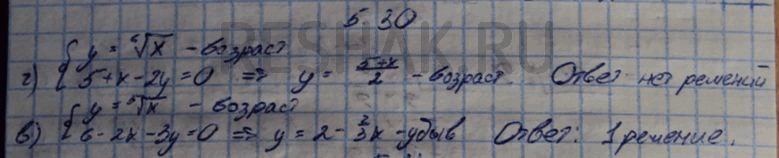 5.30
{ y = ⁶√x - возраст
г) { 5+x-2y=0 => y = (5+x)/2 - возраст. Ответ: нет решений
{ y = ⁶√x - возраст
в) { 6-2x-3y=0 => y = 2-2/3x - убыв Ответ: 1 решение.
RESHAK.RU